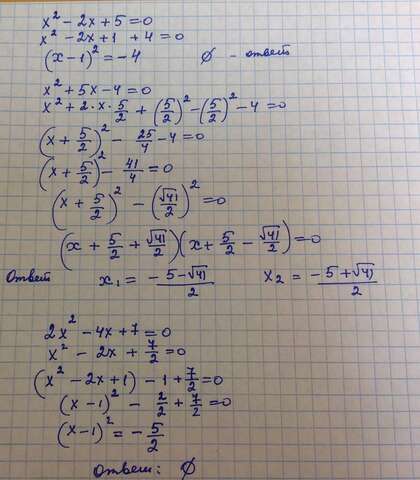 x² - 2x + 5 = 0
x² - 2x + 1 + 4 = 0
(x - 1)² = -4 ∅ - ответ
x² + 5x - 4 = 0
x² + 2 · x · 5/2 + (5/2)² - (5/2)² - 4 = 0
(x + 5/2)² - 25/4 - 4 = 0
(x + 5/2)² - 41/4 = 0
(x + 5/2)² - (√41/2)² = 0
(x + 5/2 + √41/2)(x + 5/2 - √41/2) = 0
Ответ x₁ = (-5 - √41)/2 x₂ = (-5 + √41)/2
2x² - 4x + 7 = 0
x² - 2x + 7/2 = 0
(x² - 2x + 1) - 1 + 7/2 = 0
(x - 1)² - 2/2 + 7/2 = 0
(x - 1)² = - 5/2
Ответ: ∅